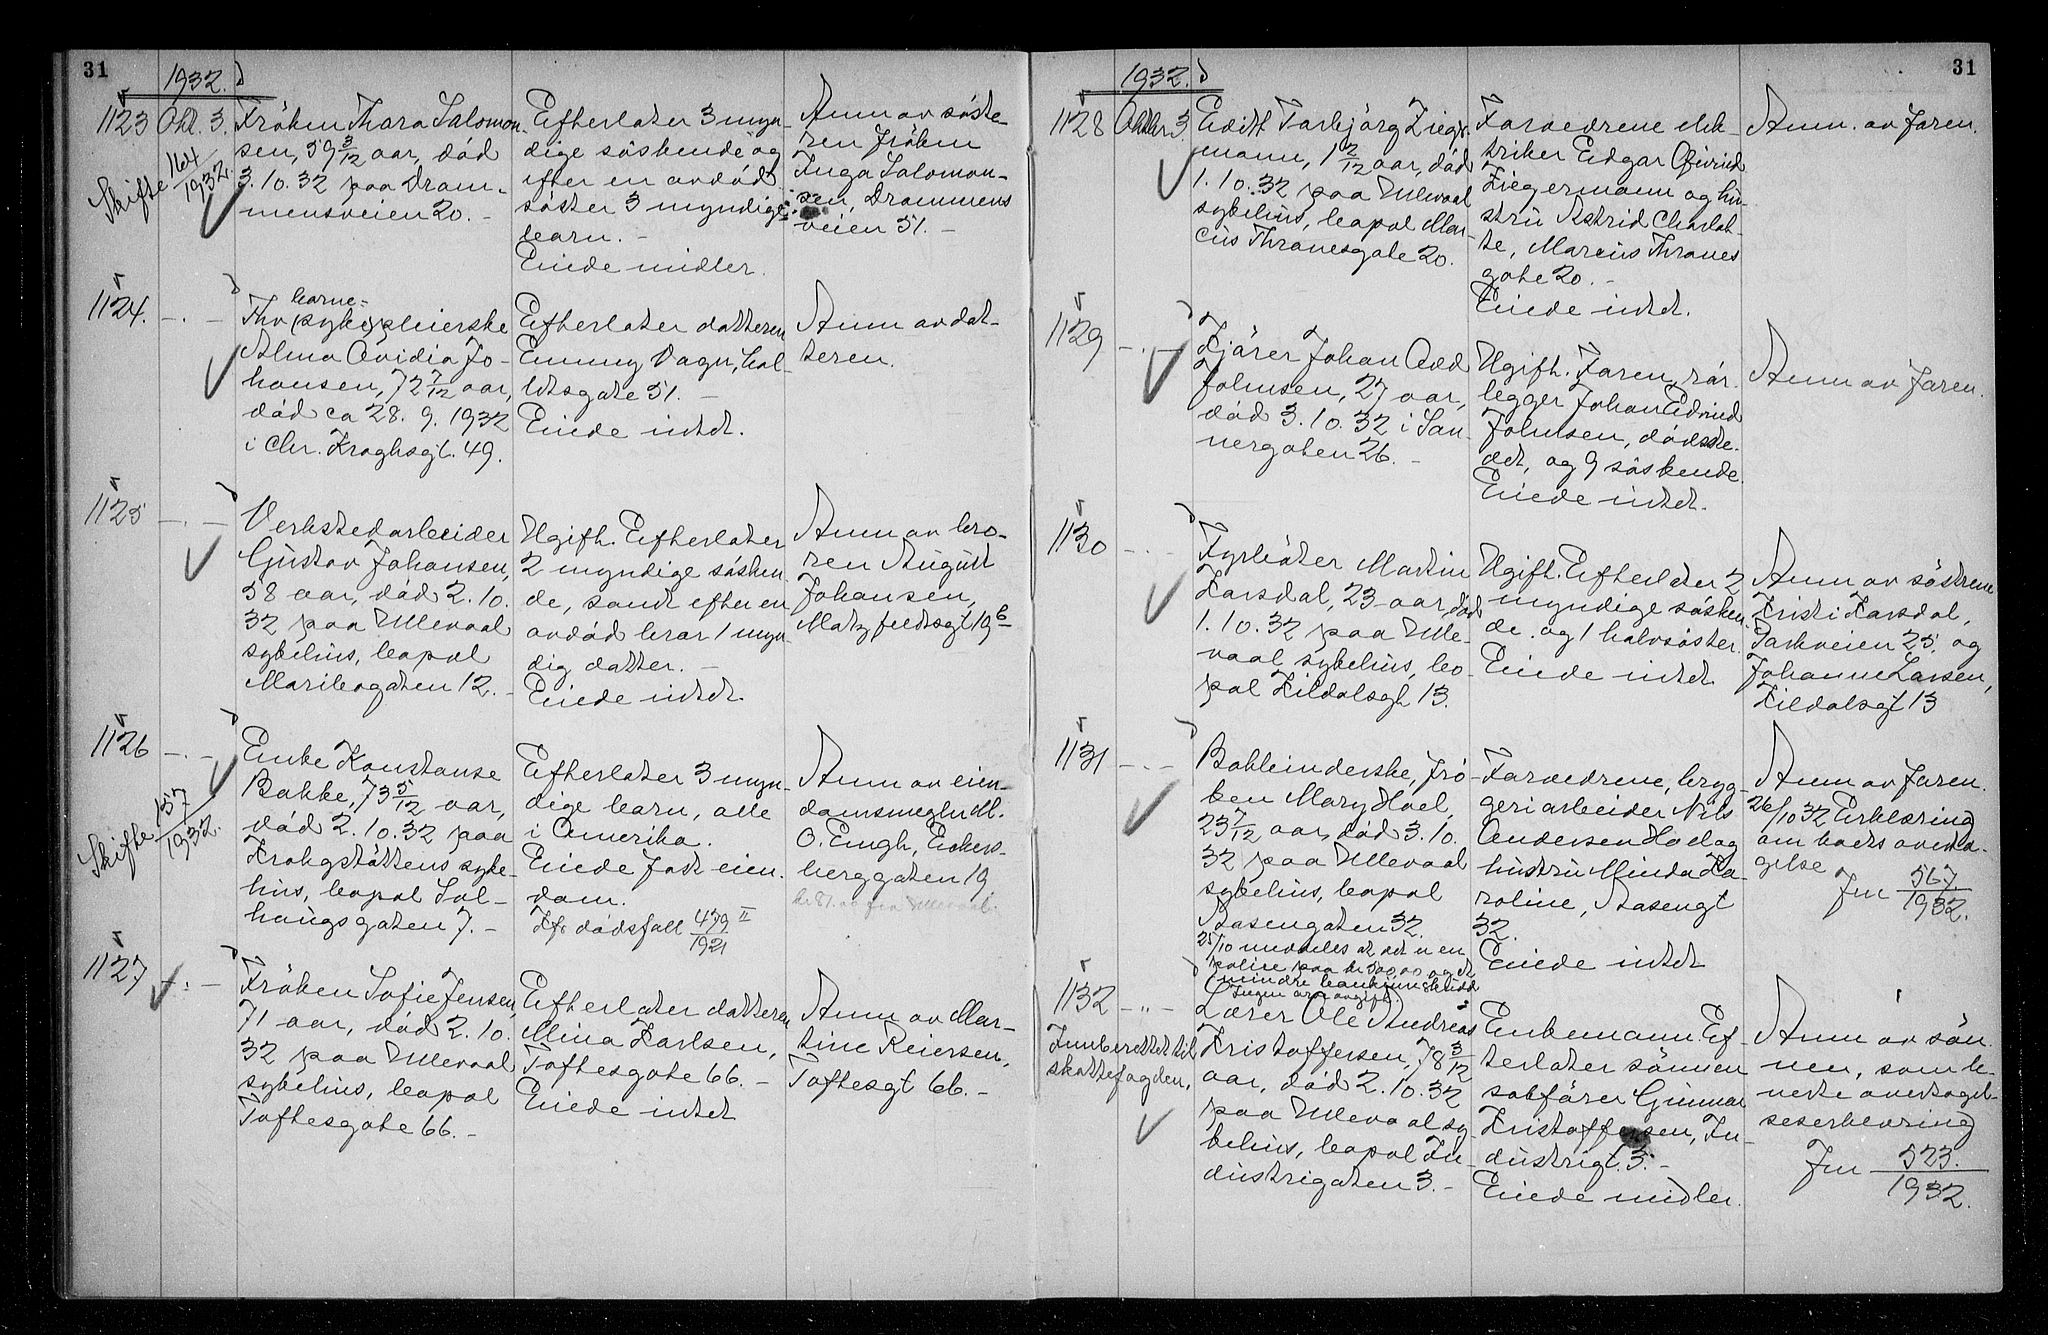 31
1932.
1123 Okt. 3.
Skifte 164/1932.
Fröken Thora Salomon-
sen, 59 3/12 aar, död
3.10.32 paa Dram-
mensveien 20. -
Efterlater 3 myn-
dige söskende og
efter en avdöd
söster 3 myndige
barn. -
Eiede midler.
Anm av söste-
ren fröken
Inga Salomon-
sen, Drammens
veien 51. -
1124. - . -
Fhv barne-
sykepleierske
Alma Ovidia Jo-
hansen, 72 7/12 aar,
död ca 28. 9. 1932
i Chr. Kroghsgt. 49.
Efterlater datteren
Emmy Vagn, Hol-
ldtsgate 51. -
Eiede intet.
Anm av dat-
teren.
1125 - . -
Verkstedarbeider
Gustav Johansen,
58 aar, död 2.10.
32 paa Ullevaal
sykehus, bopel
Maribogaten 12. -
Ugift. Efterlater
2 myndige sösken-
de, samt efter en
avdöd bror 1 myn
dig datter. -
Eiede intet.
Anm av bro-
ren August
Johansen,
Matz feldtsgt 19 b
1126 - . -
Skifte 157/1932.
Enke Konstanse
Bakke, 73 5/12 aar,
död 2.10.32 paa
Krohgstöttens syke-
hus, bopel Sol-
haugsgaten 7. -
Efterlater 3 myn-
dige barn, alle
i Amerika.
Eiede fast eien-
dom.
Kfr dödsfall 479 II/1921
Anm av eien-
damsmegler M.
O. Engh, Eckers-
berggaten 19
1127 - . -
Fröken Sofie Jensen,
71 aar, död 2.10.
32 paa Ullevaal
sykehus, bopel
Toftesgate 66. -
Efterlater datteren
Mina Karlsen,
Toftesgate 66. -
Eiede intet
Anm av Mar-
tine Reiersen,
Toftesgt 66. -
31
1932.
1128 Oktbr 3
Edith Torbjörg Zieger-
mann, 1 2/12 aar, död
1.10.32 paa Ullevaal
sykehus, bopel Mar-
cus Thranesgate 20.
Foreldrene elek-
triker Edgar
Ziegermann og hu-
stru Astrid Charlot-
te, Marcus Thranes
gate 20. -
Eiede intet.
Anm. av faren.
1129 - . -
Kjörer Johan Odd
Johnsen, 27 aar,
död 3.10.32 i San-
nergaten 26. -
Ugift. Faren, rör-
legger Johan Edvind
Johnsen, dödsste-
det, og 9 söskende.
Eiede intet.
Anm av faren.
1130 - . -
Fyrböter Martin
Karsdal, 23 aar död
1.10.32 paa Ulle-
vaal sykehus, bo-
pel Kildalsgt 13.
Ugift. Efterlater 2
myndige sösken-
de og 1 halvsöster.
Eiede intet
Anm av söstrene
Kristi Karsdal,
Parkveien 25, og
Johanne Larsen,
Kildalsgt 13
1131 - . -
Bokbinderske, frö
ken Mary Hoel,
23 7/12 aar, död 3.10.
32 paa Ullevaal
sykehus, bopel
Aasengaten 32.
25/10 meddeles at det er en
polise paa kr 500,00 og et
mindre bankinnskudd
Ingen arveavgift.
Foreldrene, bryg-
geriarbeider Nils
Andersen Hoel og
hustru Minda Ka-
roline, Aasengt
32.
Eiede intet
Anm av faren.
26/10 32 Erklæring
om boets overta-
gelse
Jnr 567/1932.
1132 - „ -
Innberettet til
skattefogden.
Lærer Ole Andreas
Kristoffersen, 78 3/12
aar, död 2.10.32
paa Ullevaal sy-
kehus, bopel In-
dustrigaten 3. -
Enkemann. Ef-
terlater sönnen
sakförer Gunnar
Kristoffersen, In-
dustrigt. 3. -
Eiede midler.
Anm av sön-
nen, som le-
verte overtagel-
seserklæring
Jnr 523./1932.